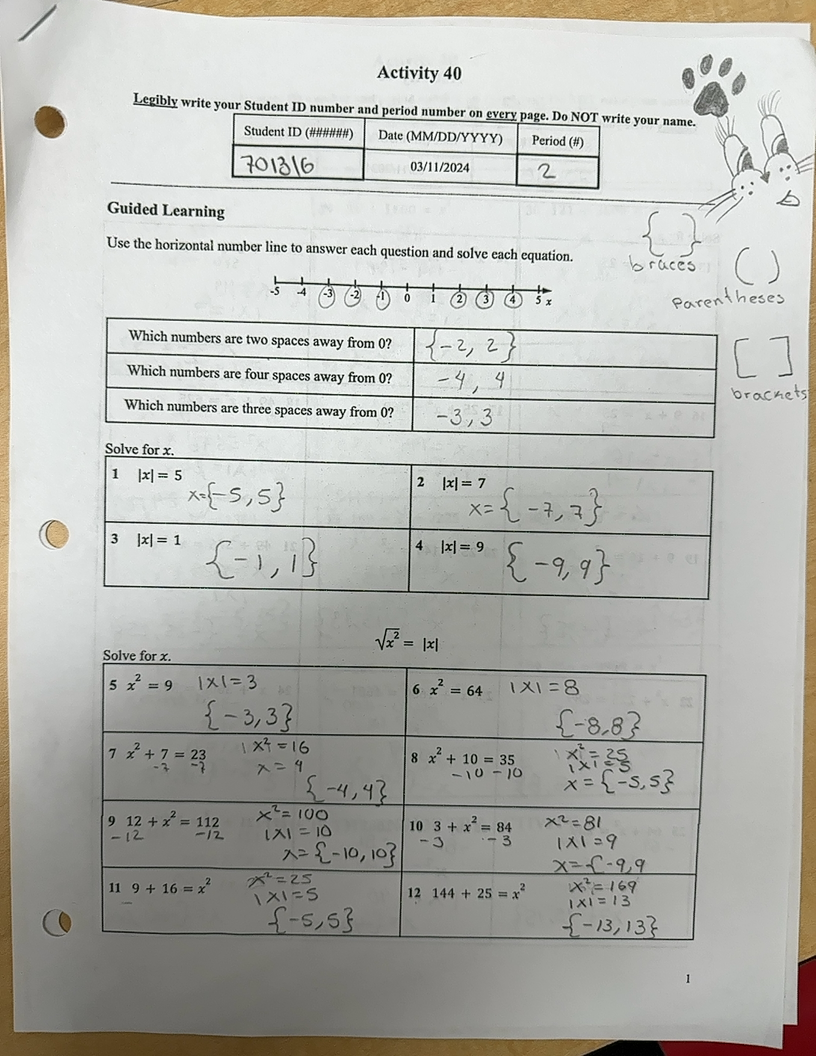 Activity 40
Legibly write your Student ID number and period number on every page. Do NOT write your name.
Student ID (######) Date (MM/DD/YYYY) Period (#)
701316 03/11/2024 2
Guided Learning
Use the horizontal number line to answer each question and solve each equation.
{ }
braces
( )
Parentheses
[ ]
brackets
-5 -4 -3 -2 -1 0 1 2 3 4 5 x
Which numbers are two spaces away from 0? {-2, 2}
Which numbers are four spaces away from 0? -4, 4
Which numbers are three spaces away from 0? -3, 3
Solve for x.
1 |x| = 5
x={-5, 5}
2 |x| = 7
x= {-7, 7}
3 |x| = 1
{-1, 1}
4 |x| = 9
{-9, 9}
√x² = |x|
Solve for x.
5 x² = 9 |x|=3
{-3, 3}
6 x² = 64 |x|=8
{-8,8}
7 x² + 7 = 23 x²=16
-7 -7 x = 4
{-4, 4}
8 x² + 10 = 35 x²=25
-10 -10 |x|=5
x = {-5, 5}
9 12 + x² = 112 x²=100
-12 -12 |x| = 10
x= {-10, 10}
10 3 + x² = 84 x²=81
-3 -3 |x|=9
x={-9,9
11 9 + 16 = x² x²=25
|x|=5
{-5, 5}
12 144 + 25 = x² x²=169
|x|=13
{-13, 13}
1